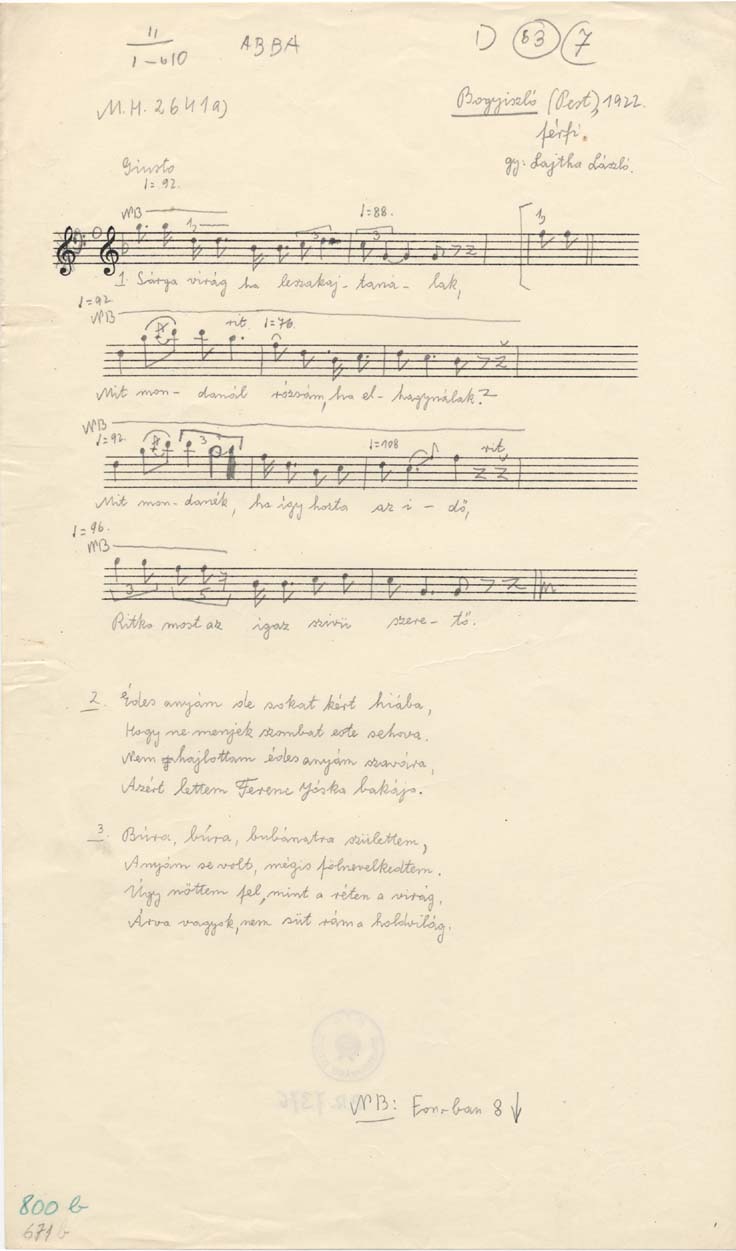 11
1-610
ABBA
1) 63 7
M.H. 2641a)
Bogyiszló (Pest), 1922.
férfi.
gy: Lajtha László.
Giusto
♩=92.
NB
♩=88.
3
3
1. Sárga virág ha leszakaj-taná-lak,
♩=92
NB
rit. ♩=76.
Mit mon-danál rózsám, ha el-hagynálak?
NB
♩=92.
3
♩=108
rit
Mit mon-danék, ha így hozta az i-dő,
♩=96.
NB
3
5
Ritka most az igaz szivü szere-tő.
2. Édes anyám de sokat kért hiába,
Hogy ne menjek szombat este sehova.
Nem hajlottam édesanyám szavára,
Azért lettem Ferenc Jóska bakája.
3. Búra, búra, bubánatra születtem,
Anyám se volt, mégis fölnevelkedtem.
Úgy nőttem fel, mint a réten a virág,
Árva vagyok, nem süt rám a holdvilág.
NB: Fon.-ban 8 ↓
800 b
671 b